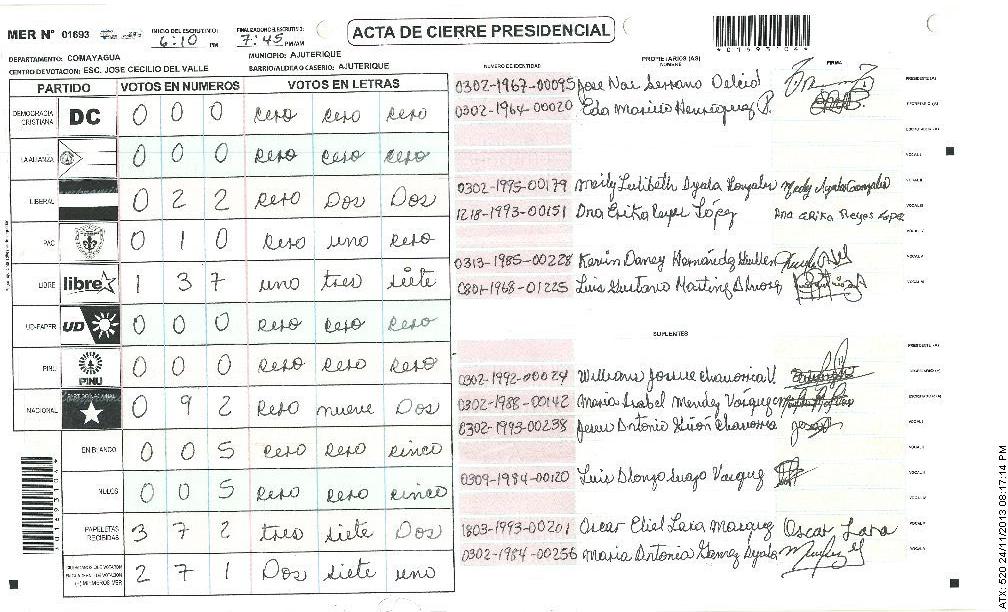 MER N° 01693
INICIO DEL ESCRUTINIO: 6:10 PM
FINALIZACION ESCRUTINIO: 7:45 PM/AM
ACTA DE CIERRE PRESIDENCIAL
DEPARTAMENTO: COMAYAGUA
MUNICIPIO: AJUTERIQUE
CENTRO DE VOTACION: ESC. JOSE CECILIO DEL VALLE
BARRIO/ALDEA O CASERIO: AJUTERIQUE
PARTIDO VOTOS EN NUMEROS VOTOS EN LETRAS
DEMOCRACIA CRISTIANA DC 0 0 0 cero cero cero
LA ALIANZA 0 0 0 cero cero cero
LIBERAL 0 2 2 cero Dos Dos
PAC 0 1 0 cero uno cero
LIBRE libre 1 3 7 uno tres siete
UD-FAPER UD 0 0 0 cero cero cero
PINU PINU 0 0 0 cero cero cero
NACIONAL 0 9 2 cero nueve Dos
EN BLANCO 0 0 5 cero cero cinco
NULOS 0 0 5 cero cero cinco
PAPELETAS RECIBIDAS 3 7 2 tres siete Dos
2 7 1 Dos siete uno
NUMERO DE IDENTIDAD
PROPIETARIOS (AS)
NOMBRE
FIRMA
0302-1967-00095 Jose Serrano PRESIDENTE (A)
0302-1964-00020 Eda Henriquez P. SECRETARIO (A)
VOCAL I
0302-1995-00179 Ayala Gonzales Ayala Gonzales VOCAL II
1218-1993-00151 Ana Erika Reyes López Ana Erika Reyes Lopez VOCAL III
0313-1985-00228 Karin Daney Hernández VOCAL V
0801-1968-01225 Luis Gustavo Martinez VOCAL VI
SUPLENTES
PRESIDENTE (A)
0302-1992-00024 Williams Josue Chavarria V. SECRETARIO (A)
0302-1988-00142 Maria Isabel Mendez Vasquez
0302-1993-00238 Jesus Antonio Chavarria VOCAL I
0309-1984-00120 Luis Alonzo Suazo Vasquez VOCAL III
1803-1993-00201 Oscar Eliel Lara Marquez Oscar Lara VOCAL V
0302-1984-00256 Maria Antonia Gomez Ayala
ATX: 520 24/11/2013 08:17:14 PM